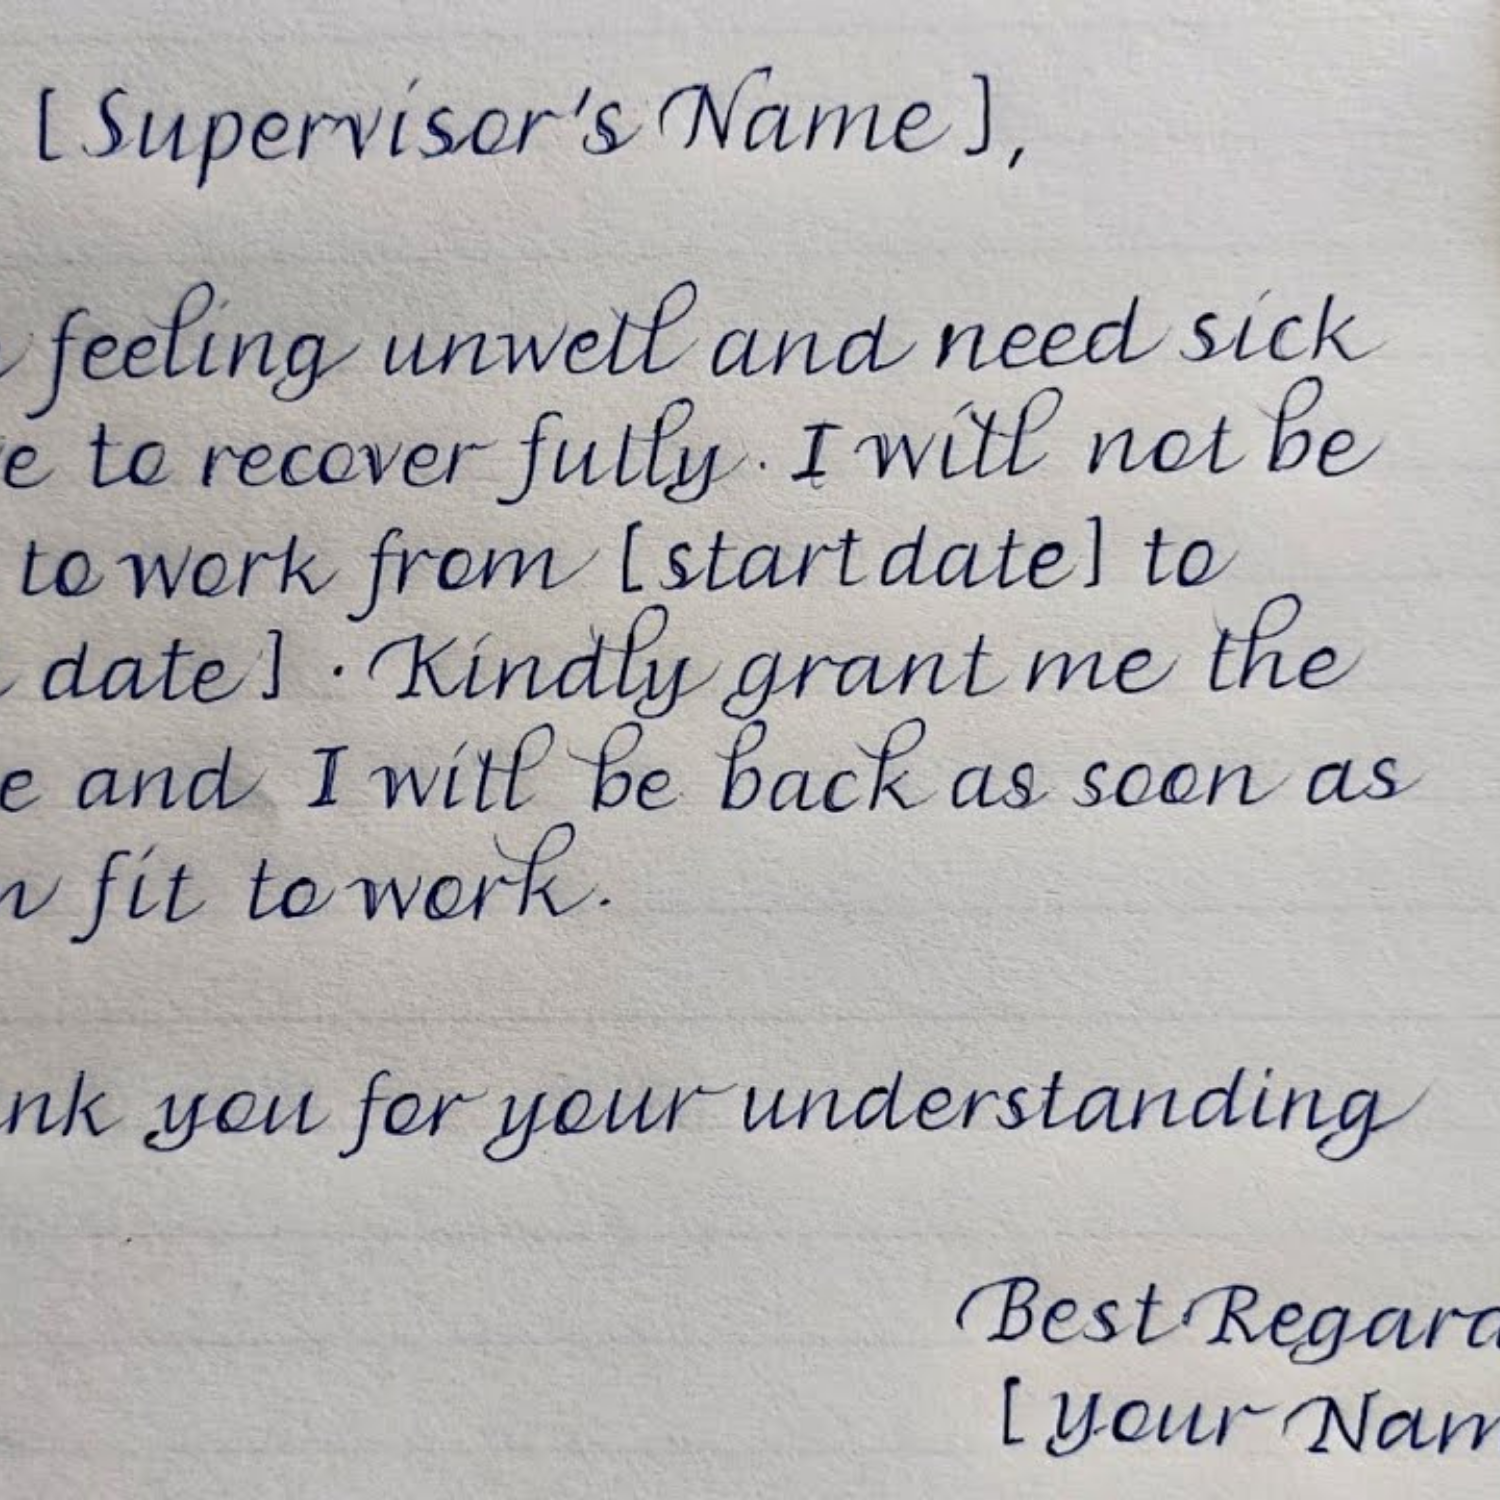 [Supervisor's Name],
feeling unwell and need sick
e to recover fully. I will not be
to work from [start date] to
date]. Kindly grant me the
e and I will be back as soon as
fit to work.
nk you for your understanding
Best Regard
[your Nam